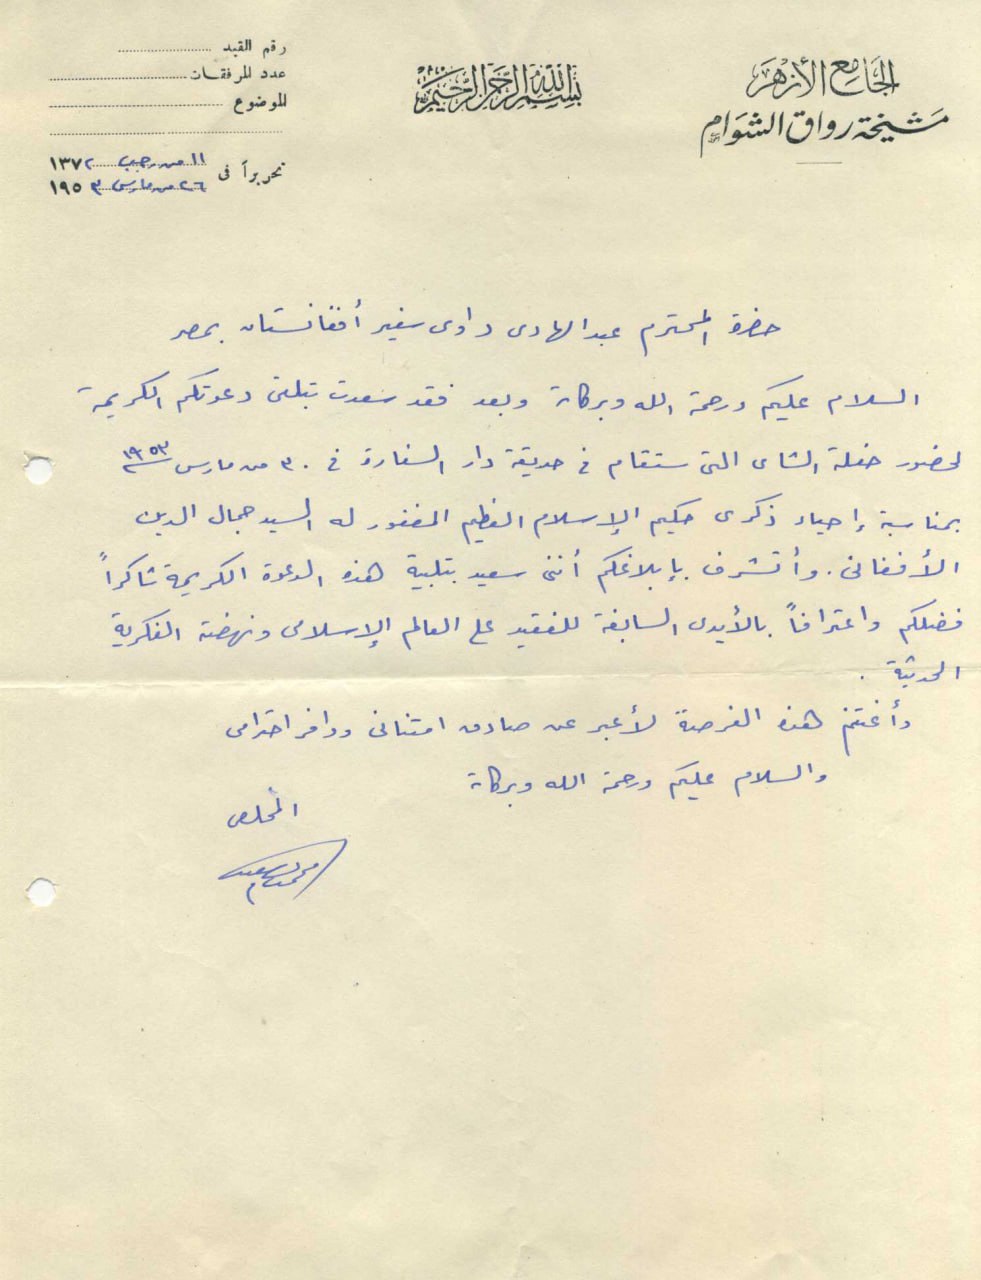 الجامع الأزهر
مشيخة رواق الشوام
بسم الله الرحمن الرحيم
رقم القيد
عدد المرفقات
الموضوع
تحريراً في ١١ من رجب ١٣٧٢
٢٦ من مارس ١٩٥٣
حضرة المحترم عبد الهادى داوى سفير أفغانستان بمصر
السلام عليكم ورحمة الله وبركاته وبعد فقد سعدت بتلقى دعوتكم الكريمة
لحضور حفلة الشاى التى ستقام فى حديقة دار السفارة فى ٣٠ من مارس ١٩٥٣
بمناسبة إحياء ذكرى حكيم الإسلام العظيم المغفور له السيد جمال الدين
الأفغانى. وأتشرف بإبلاغكم أننى سعيد بتلبية هذه الدعوة الكريمة شاكراً
فضلكم واعترافاً بالأيدى السابغة للفقيد على العالم الإسلامى ونهضته الفكرية
الحديثة .
وأغتنم هذه الفرصة لأعبر عن صادق امتنانى ووافر احترامى
والسلام عليكم ورحمة الله وبركاته
المخلص